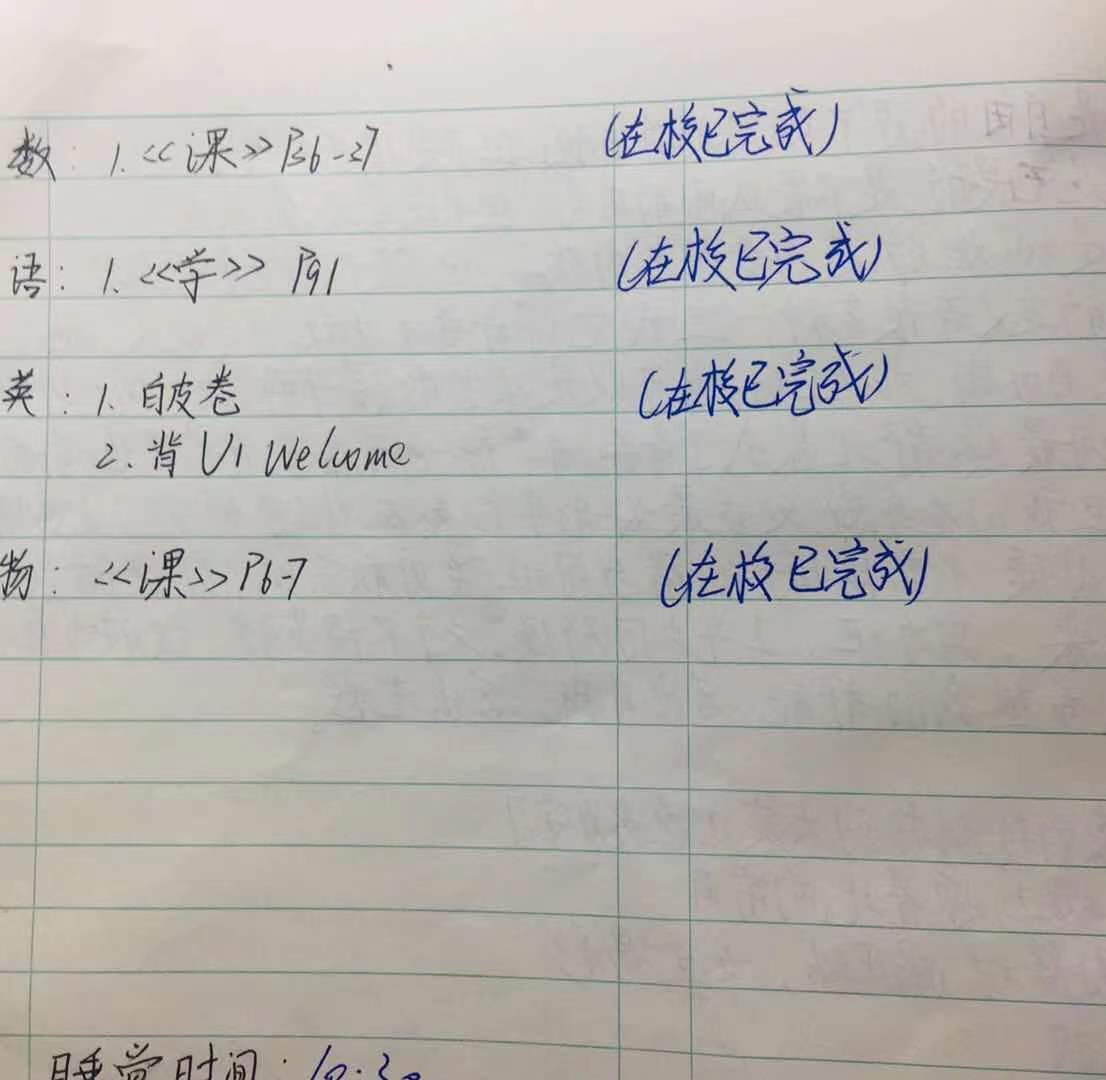 数: 1. <<课>> P26-27 (在校已完成)
语: 1. <<学>> P91 (在校已完成)
英: 1. 白皮卷 (在校已完成)
2. 背 U1 Welcome
物: <<课>> P6-7 (在校已完成)
睡觉时间: 10:30